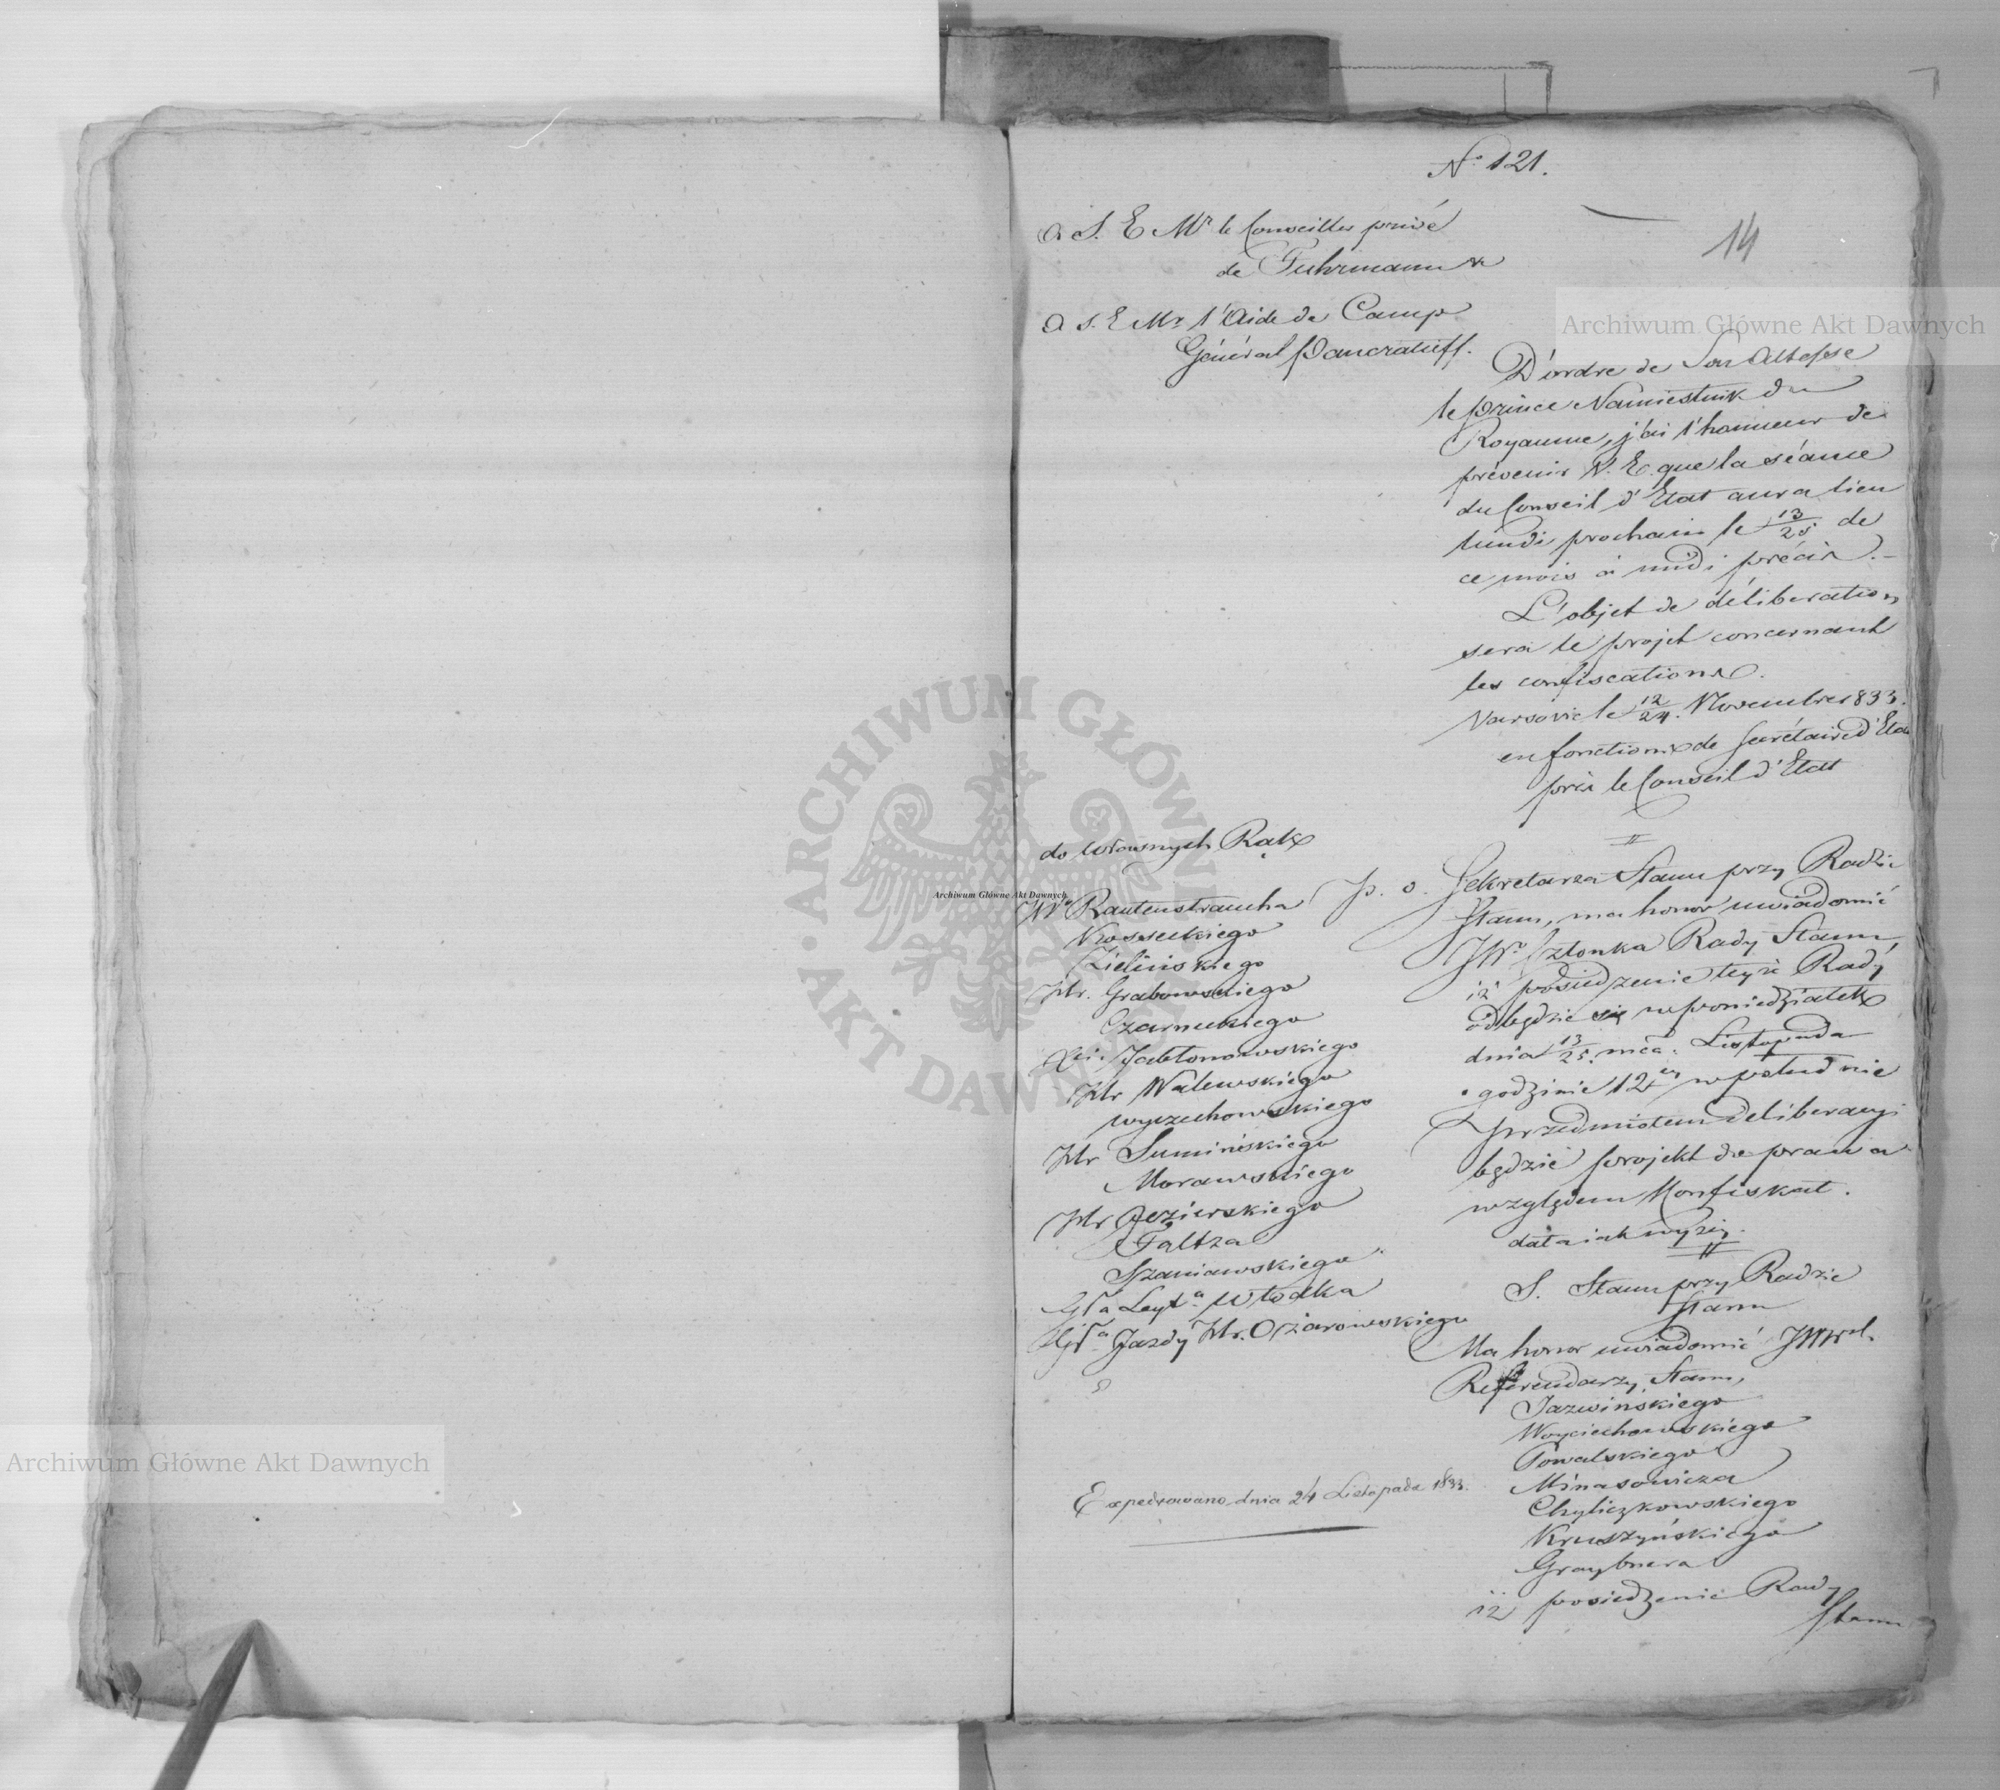 No 121.
14
a S. E Mr le Conseiller privé
de Fuhrmann
a S. E Mr l'Aide de Camp
Général Pancratieff.
D'ordre de Son Altesse
le Prince Namiestnik du
Royaume, j'ai l'honneur de
prévenir V. E. que la séance
du Conseil d'Etat aura lieu
lundi prochain le 13/25 de
ce mois à midi précis. –
L'objet de déliberation
sera le projet concernant
les confiscations.
Varsovie le 12/24. Novembre 833.
en fonctions de Secrétaire d'Etat
près le Conseil d'Etat
do własnych Rąk
Rautenstraucha
Kosseckiego
Zielinskiego
Hr. Grabowskiego
Czarneckiego
Xcia Jabłonowskiego
Hr Walewskiego
Wyczechowskiego
Hr Suminskiego
Morawskiego
Hr Jezierskiego
Faltza
Szaniawskiego
Gła Leyta Włodka
Gła Jazdy Hr. Ożarowskiego
Expedjowano dnia 24 Listopada 1833.
p. o. Sekretarza Stanu przy Radzie
Stanu, ma honor uwiadomić
JWo Członka Rady Stanu
iż posiedzenie teyże Rady
odbędzie się w poniedziałek
dnia 13/25. mca. Listopada
o godzinie 12ey w południe
Przedmiotem deliberacyi
będzie projekt do prawa
względem Konfiskat.
data iak wyżey.
S. Stanu przy Radzie
Stanu
Ma honor uwiadomić JWWch
Referendarzy Stanu,
Jazwinskiego
Woyciechowskiego
Powalskiego
Minasowicza
Chyliczkowskiego
Kruszyńskiego
Graybnera
iż posiedzenie Rady
Stanu
Archiwum Główne Akt Dawnych
Archiwum Główne Akt Dawnych
Archiwum Główne Akt Dawnych
ARCHIWUM GŁÓWNE AKT DAWNYCH